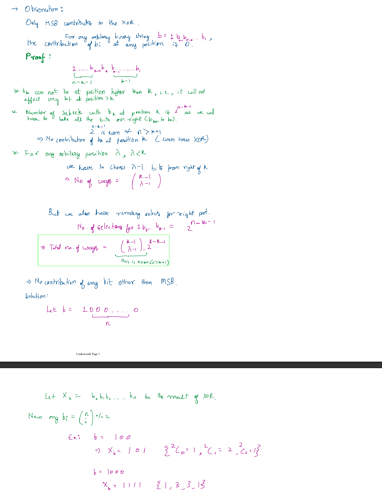 → Observation:
Only MSB contributes to the XOR.
For any arbitrary binary string b = 1 b
the contribution of bi at any position is 0.
Proof:
n-k-1
k-1
can not be at position higher than k, i.e., it will not
affect any bit at position > k
Number of subsets with b_k at position k is 2^{n-k-1} as we will
have to take all the bits on right
2^{n-k-1} is even ∀ n > k+1
⇒ No contribution of b_k at position k (even times XOR)
* For any arbitrary position λ, λ<k
we have to choose λ-1 bits from right of k
⇒ No of ways = (k-1 λ-1)
But we also have remaining subsets for right part.
No of selections for = 2^{n-k-1}
⇒ Total no. of ways = (k-1 λ-1) · 2^{n-k-1}
This is even
⇒ No contribution of any bit other than MSB.
Solution:
Let b = 1 0 0 0 .... 0
n
Let X_b = be the result of XOR.
Now any b_i = (n i) % 2
Ex: b = 100
⇒ X_b = 101 {²C₀=1, ²C₁=2, ²C₂=1}
b = 1000
X_b = 1111 {1, 3, 3, 1}